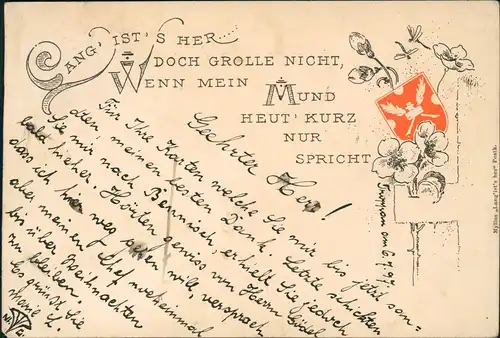 LANG' IST'S HER...
DOCH GROLLE NICHT,
WENN MEIN
MUND
HEUT' KURZ
NUR
SPRICHT
Geehrter Herr!
Für Ihre Karten welche Sie mir bis jetzt san-
dten, meinen besten Dank. Letzte schickten
Sie mir nach Bennisch, erhielt Sie jedoch
bald hieher. Hörten Gewiss von Herrn
dass ich hier was sehen will, versprach
aber meinem Chef nocheinmal
bis über Weihnachten
zu bleiben.
Es grüßt Sie
Marie L.
Troppau am 6./7. 97.
Mylius „Lang'ist's her" Postk.